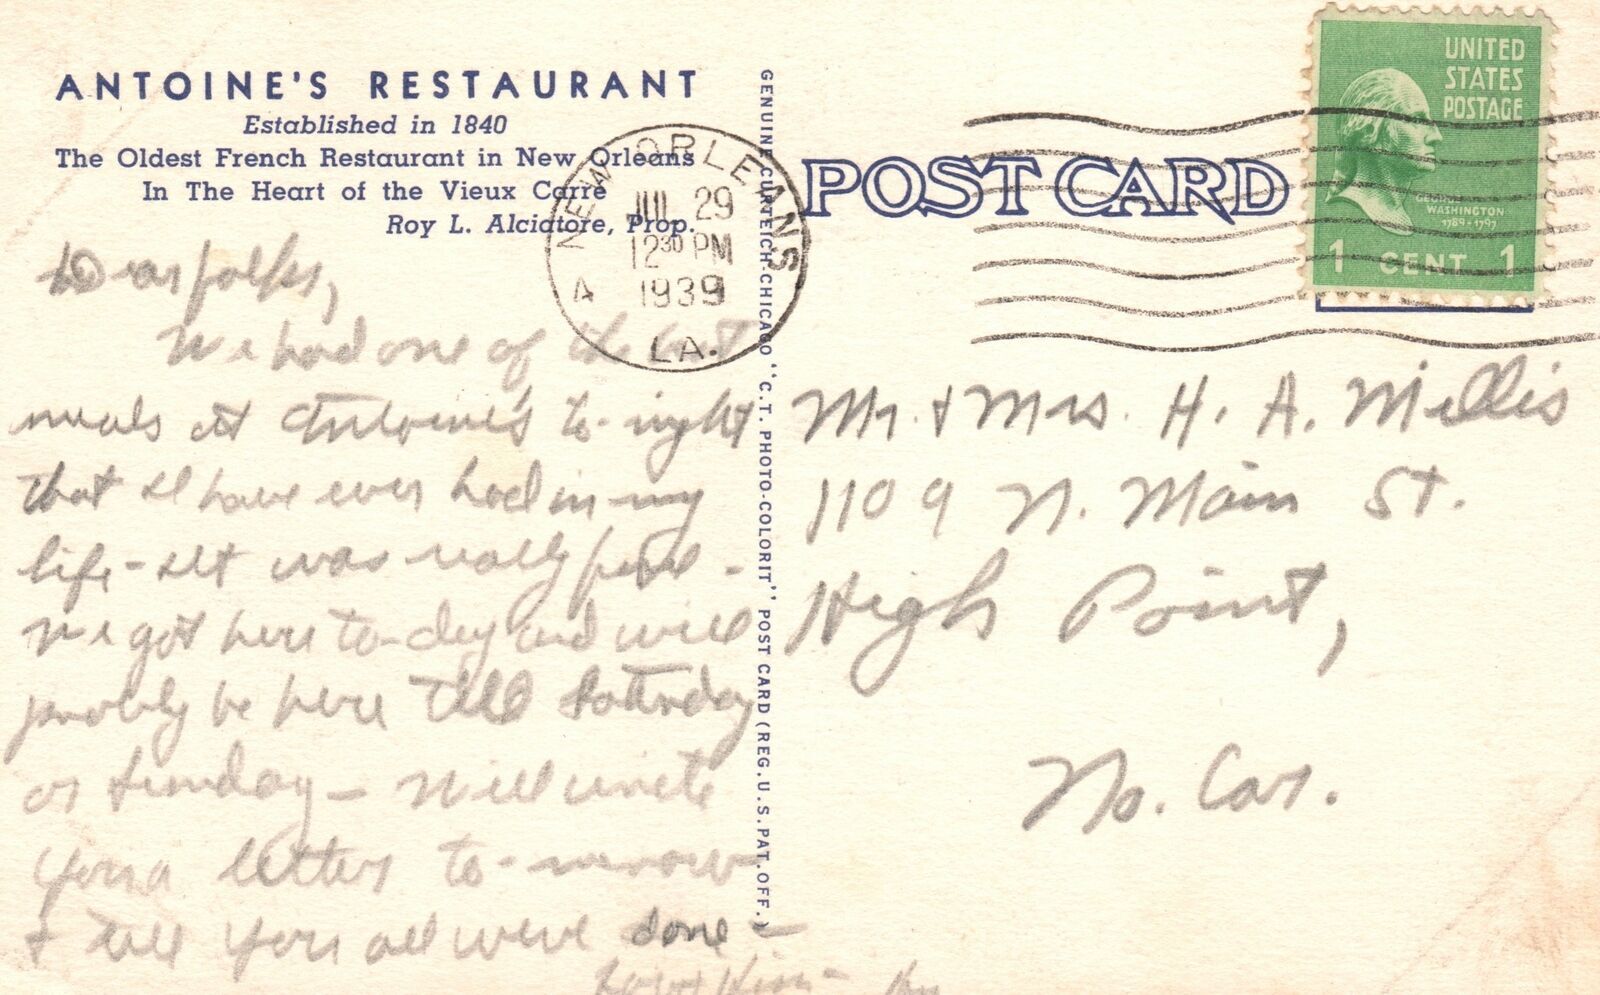 ANTOINE'S RESTAURANT
Established in 1840
The Oldest French Restaurant in New Orleans
In The Heart of the Vieux Carre
Roy L. Alciatore, Prop.
Dear folks,
We had one of the best
meals at Antoine's to-night
that I have ever had in my
life - It was really fine -
We got here to-day and will
probably be here till Saturday
or Sunday - Will write
you a letter to-morrow
& tell you all weve done -
GENUINE CURTEICH-CHICAGO "C.T. PHOTO-COLORIT" POST CARD (REG. U.S. PAT. OFF.)
NEW ORLEANS
A
JUL 29
12 30 PM
1939
LA.
POST CARD
UNITED
STATES
POSTAGE
GEORGE
WASHINGTON
1789-1797
1 CENT 1
Mr. & Mrs. H. A. Millis
1109 N. Main St.
High Point,
No. Car.